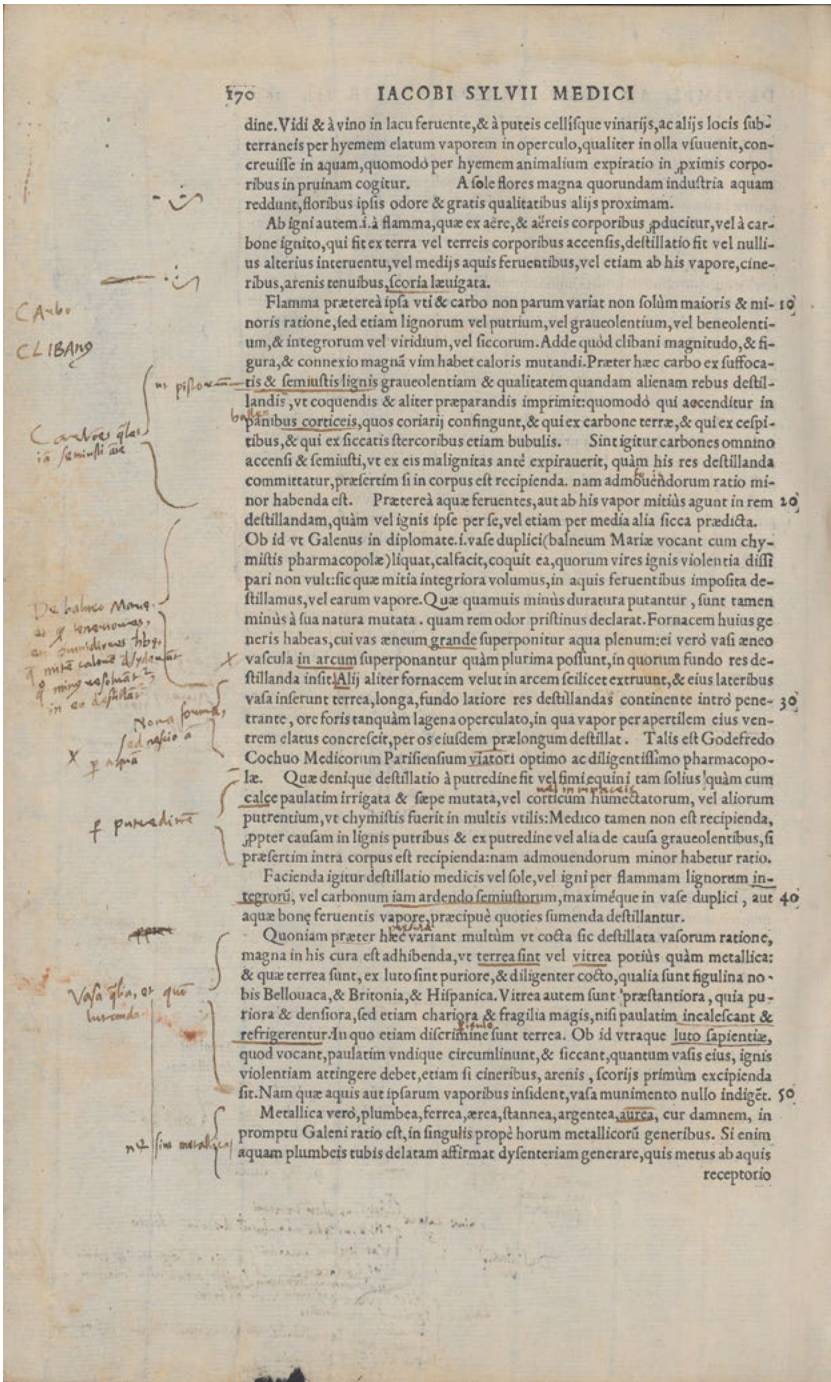 170 IACOBI SYLVII MEDICI
dine. Vidi & à vino in lacu feruente, & à puteis cellisque vinarijs, ac alijs locis sub-
terraneis per hyemem elatum vaporem in operculo, qualiter in olla vsuuenit, con-
creuisse in aquam, quomodo per hyemem animalium expiratio in ꝓximis corpo-
ribus in pruinam cogitur. A sole flores magna quorundam industria aquam
reddunt, floribus ipsis odore & gratis qualitatibus alijs proximam.
Ab igni autem .i. à flamma, quæ ex aëre, & aëreis corporibus ꝓducitur, vel à car-
bone ignito, qui fit ex terra vel terreis corporibus accensis, destillatio fit vel nulli-
us alterius interuentu, vel medijs aquis feruentibus, vel etiam ab his vapore, cine-
ribus, arenis tenuibus, scoria læuigata.
CArbo
Flamma prætereà ipsa vti & carbo non parum variat non solùm maioris & mi- 10
noris ratione, sed etiam lignorum vel putrium, vel graueolentium, vel beneolenti-
CLIBANꝰ
um, & integrorum vel viridium, vel siccorum. Adde quòd clibani magnitudo, & fi-
gura, & connexio magnā vim habet caloris mutandi. Præter hæc carbo ex suffoca-
tis & semiustis lignis graueolentiam & qualitatem quandam alienam rebus destil-
landis, vt coquendis & aliter præparandis imprimit: quomodo qui accenditur in
panibus corticeis, quos coriarij confingunt, & qui ex carbone terræ, & qui ex cespi-
tibus, & qui ex siccatis stercoribus etiam bubulis. Sint igitur carbones omnino
accensi & semiusti, vt ex eis malignitas antè expirauerit, quàm his res destillanda
committatur, præsertim si in corpus est recipienda. nam admouendorum ratio mi-
nor habenda est. Prætereà aquæ feruentes, aut ab his vapor mitiùs agunt in rem 20
destillandam, quàm vel ignis ipse per se, vel etiam per media alia sicca prædicta.
Ob id vt Galenus in diplomate .i. vase duplici (balneum Mariæ vocant cum chy-
mistis pharmacopolæ) liquat, calfacit, coquit ea, quorum vires ignis violentia dissi
pari non vult: sic quæ mitia integriora volumus, in aquis feruentibus imposita de-
stillamus, vel earum vapore. Quæ quamuis minùs duratura putantur, sunt tamen
minùs à sua natura mutata. quam rem odor pristinus declarat. Fornacem huius ge
neris habeas, cui vas æneum grande superponitur aqua plenum: ei verò vasi æneo
vascula in arcum superponantur quàm plurima possunt, in quorum fundo res de-
stillanda insit. Alij aliter fornacem velut in arcem scilicet extruunt, & eius lateribus
vasa inserunt terrea, longa, fundo latiore res destillandas continente intrò pene- 30
trante, ore foris tanquàm lagena operculato, in qua vapor per apertilem eius ven-
trem elatus concrescit, per os eiusdem prælongum destillat. Talis est Godefredo
Cochuo Medicorum Parisiensium viatori optimo ac diligentissimo pharmacopo-
læ. Quæ denique destillatio à putredine fit vel fimi equini tam solius quàm cum
calce paulatim irrigata & sæpe mutata, vel corticum humectatorum, vel aliorum
putrentium, vt chymistis fuerit in multis vtilis: Medico tamen non est recipienda,
ꝓpter causam in lignis putribus & ex putredine vel alia de causa graueolentibus, si
præsertim intra corpus est recipienda: nam admouendorum minor habetur ratio.
Facienda igitur destillatio medicis vel sole, vel igni per flammam lignorum in-
tegrorū, vel carbonum iam ardendo semiustorum, maximéque in vase duplici, aut 40
aquæ bonę feruentis vapore, præcipuè quoties sumenda destillantur.
Quoniam præter hæc variant multùm vt cocta sic destillata vasorum ratione,
magna in his cura est adhibenda, vt terrea sint vel vitrea potiùs quàm metallica:
& quæ terrea sunt, ex luto sint puriore, & diligenter cocto, qualia sunt figulina no-
bis Bellouaca, & Britonia, & Hispanica. Vitrea autem sunt præstantiora, quia pu-
riora & densiora, sed etiam chariora & fragilia magis, nisi paulatim incalescant &
refrigerentur. In quo etiam discrimine sunt terrea. Ob id vtraque luto sapientiæ,
quod vocant, paulatim vndique circumlinunt, & siccant, quantum vasis eius, ignis
violentiam attingere debet, etiam si cineribus, arenis, scorijs primùm excipienda
sit. Nam quæ aquis aut ipsarum vaporibus insident, vasa munimento nullo indigēt. 50
Metallica verò, plumbea, ferrea, ærea, stannea, argentea, aurea, cur damnem, in
promptu Galeni ratio est, in singulis propè horum metallicorū generibus. Si enim
aquam plumbeis tubis delatam affirmat dysenteriam generare, quis metus ab aquis
receptorio